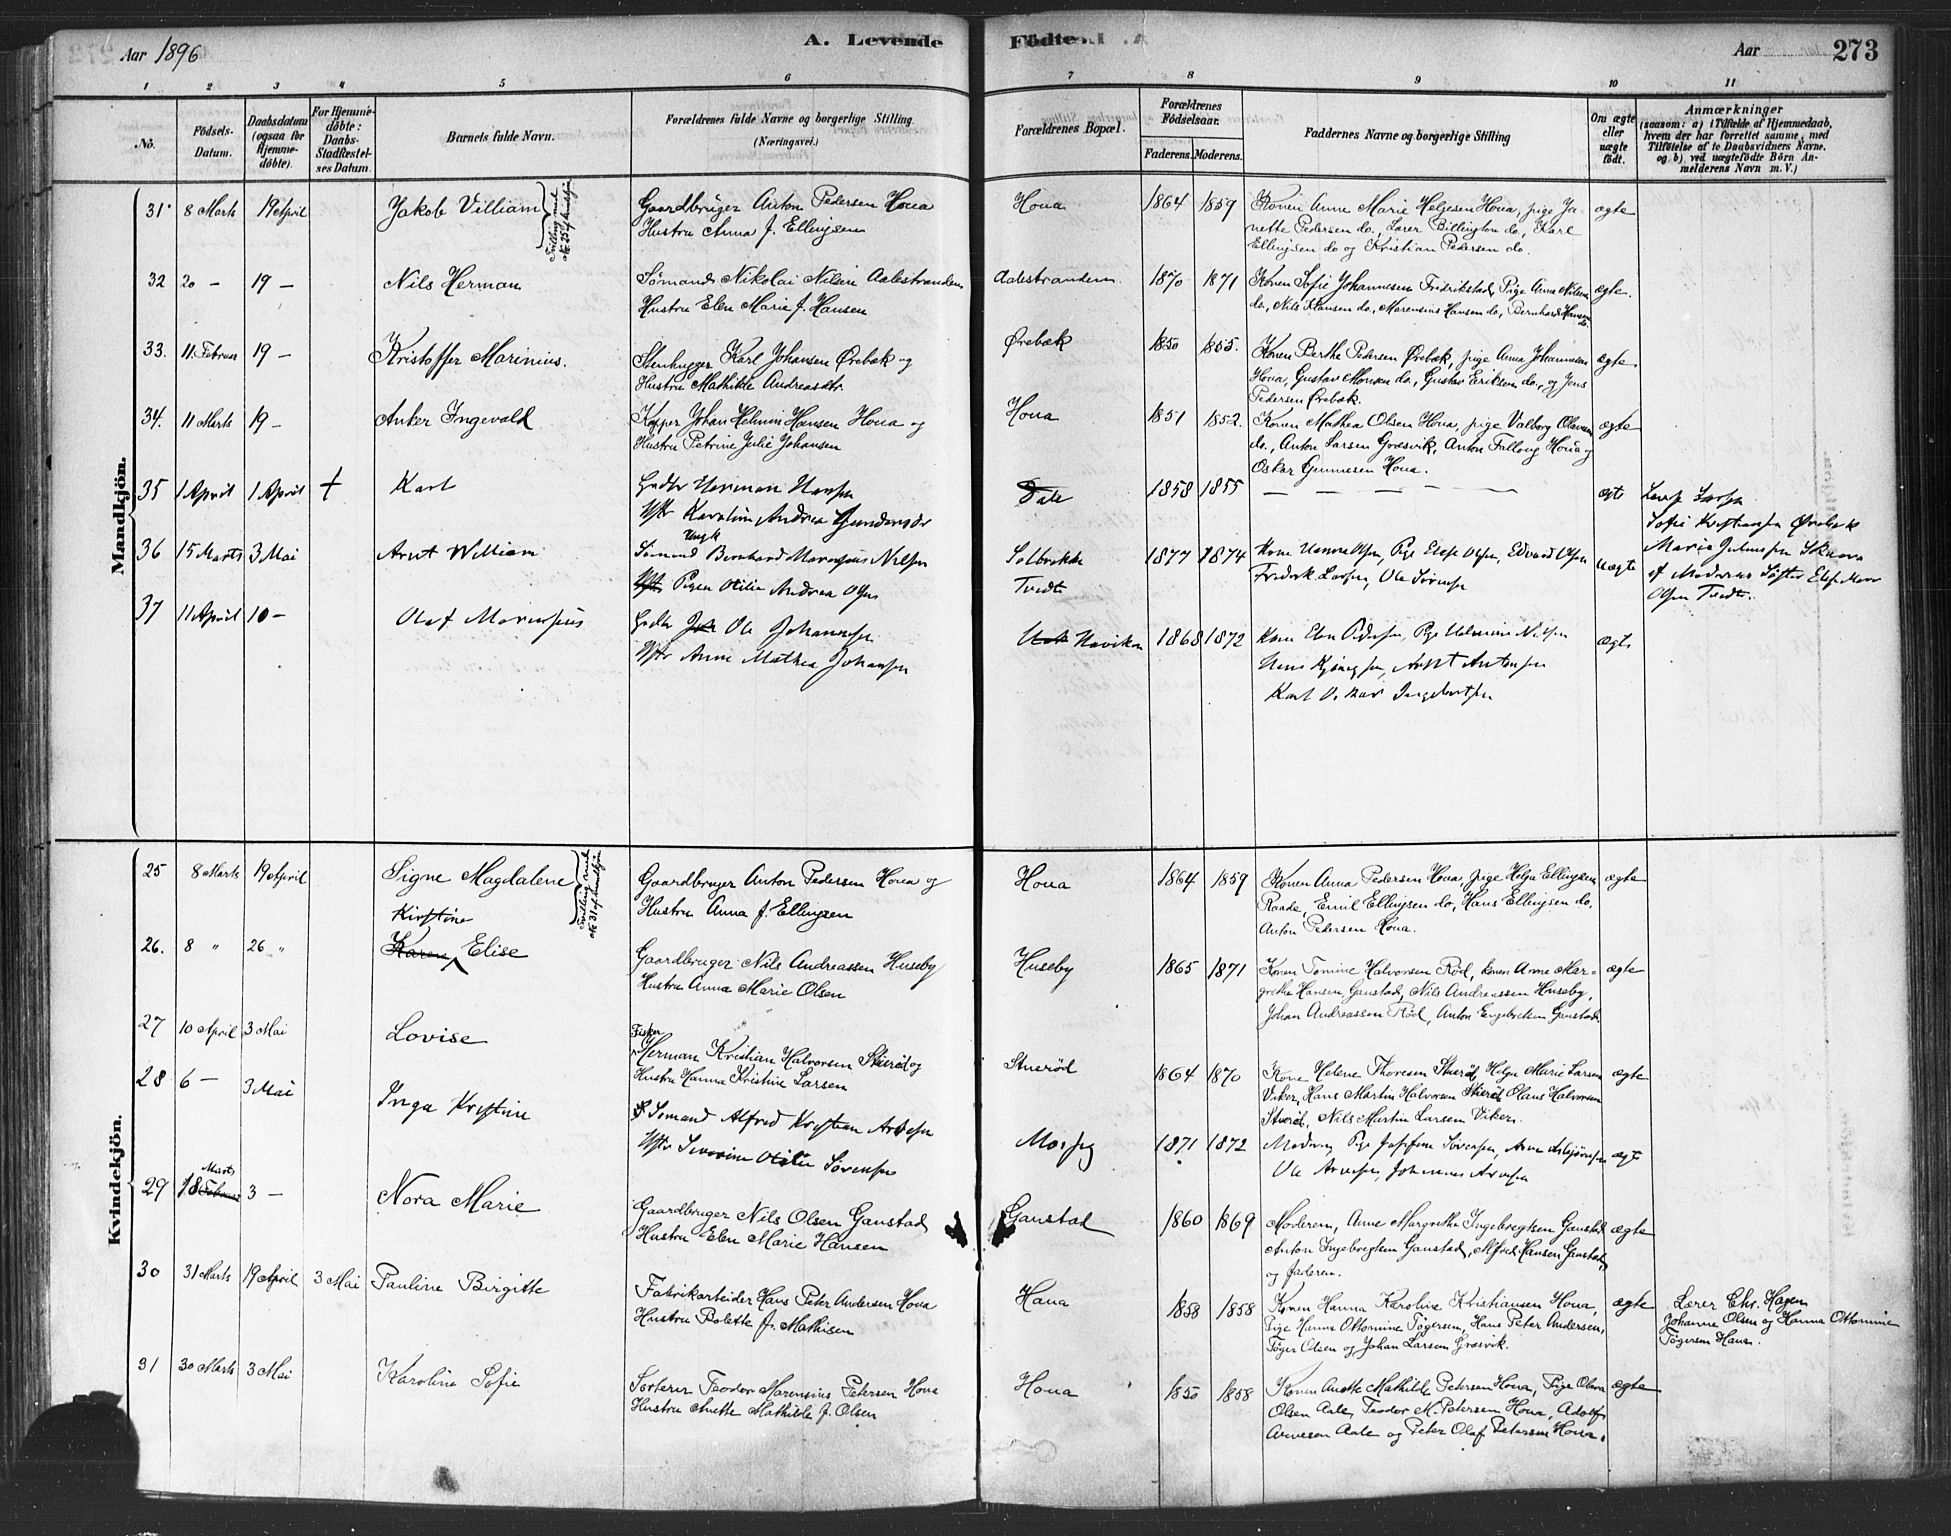 Aar 1896
A. Levende Födte.
Aar
273
1 2 3 4 5 6 7 8 9 10 11
No.
Födsels-Datum.
Daabsdatum (ogsaa for Hjemmedöbte).
For Hjemmedöbte: Daabs-Stadfæstelses Datum.
Barnets fulde Navn.
Forældrenes fulde Navne og borgerlige Stilling (Næringsvei.)
Forældrenes Bopæl.
Forældrenes Födselsaar.
Faderens. Moderens.
Faddernes Navne og borgerlige Stilling
Om ægte eller uægte födt.
Anmærkninger
(saasom: a) i Tilfælde af Hjemmedaab, hvem der har forrettet samme, med Tilföielse af to Daabsvidners Navne. og b) ved uægtefödte Börn Anmelderens Navn m. V.)
Mandkjön.
31 8 Marts 19 April Jakob Villiam
Tvilling med No 25 af kvindekjøn
Gaardbruger Anton Pedersen Houa
Hustru Anna f. Ellingsen
Houa 1864 1859
Konen Anne Marie Helgesen Houa, pige Ja-
nette Pedersen do., Lærer Billington do, Karl
Ellingsen do og Kristian Pedersen do.
ægte
32 20 - 19 - Nils Herman
Sømand Nikolai Nilsen Aalestranden
Hustru Elen Marie f. Hansen
Aalestranden 1870 1871
Konen Sofie Johannesen Fridrikstad, Pige Anna Nilsen
do., Nils Hansen do, Marensius Hansen do, Bernhard Hansen do.
ægte.
33. 11 Februar 19 - Kristoffer Marinius.
Stenhugger Karl Johansen Ørebæk og
Hustru Mathilde Andreasdtr.
Ørebæk 1850 1855.
Konen Berthe Pedersen Ørebæk, pige Anna Johannesen
Houa, Gustav Monsen do., Gustav Eriksen do., og Jens
Pedersen Ørebæk.
ægte
34. 11 Marts 19 - Anker Ingevald
Johan Helmin Hansen Houa og
Hustru Petrine Julie Johansen
Houa 1851 1852.
Konen Mathea Olsen Houa, pige Valborg Olavesen
do., Anton Larsen Græsvik, Anton Houa og
Oskar Gunnesen Houa.
ægte
35 1 April 1 April + Karl
Herman Hansen
Hstr Karoline Andrea Gundersdr
Dale 1858 1855
— — — — —
ægte
Sofie Kristiansen Ørebæk
36 15 Marts 3 Mai Arnt William
Ungk
Sømand Bernhard Marensius Nilsen
Pigen Otilie Andrea Olsen
Solbrekke
Tvedte
1877 1874
Kone Hanna Olsen, Pige Elise Olsen, Edvard Olsen
Fredrik Larsen, Ole Sørensen
uægte
Marie Johansen
af Moderens Søster
Olsen Tvedte.
37 11 April 10 - Olaf Marensius
Ole Johannesen
Hstr Anne Mathea Johansen
Haviken 1868 1872
Kone Elen Pedersen, Pige Helmine Nilsen
Arnt Antonsen
Karl Oskar Ingebretsen
ægte
Kvindekjön.
25 8 Marts 19 April Signe Magdalene
Tvilling med No 31 af mandkjøn
Gaardbruger Anton Pedersen Houa og
Hustru Anna f. Ellingsen
Houa 1864 1859
Konen Anna Pedersen Houa, pige Helga Ellingsen
Raade, Emil Ellingsen do, Hans Ellingsen do.
Anton Pedersen Houa.
ægte
26. 8 " 26 " Karen Kirstine Elise
Gaardbruger Nils Andreassen Huseby
Hustru Anna Marie Olsen
Huseby 1865 1871
Konen Tomine Halvorsen Rød, konen Anne Mar-
grethe Hansen Ganstad, Nils Andreassen Huseby,
Johan Andreassen Rød, Anton Engebretsen Ganstad.
ægte
27 10 April 3 Mai Lovise
Fisker
Herman Kristian Halvorsen Stuerød og
Hustru Hanna Kristine Larsen
Stuerød 1864 1870
Kone Helene Thoresen Stuerød, Helga Marie Larsen
Viker, Hans Martin Halvorsen Stuerød, Olaus Halvorsen
Stuerød, Nils Martin Larsen Viker.
ægte
28 6 - 3 Mai Inga Kristine
Sømand Alfred Kristian Arvesen
Hstr Severine Otilie Sørensen
1871 1872
Moderen, Pige Josefine Sørensen, Arne Asbjørnsen
Ole Arvesen, Johannes Arvesen
ægte
29 18 Februar Marts 3 - Nora Marie
Gaardbruger Nils Olsen Ganstad
Hustru Elen Marie Hansen
Ganstad 1860 1869
Moderen, Anne Margrethe Ingebregtsen Ganstad
Anton Ingebregtsen Ganstad, Alfred Hansen Ganstad,
og faderen.
ægte
30 31 Marts 19 April 3 Mai Pauline Birgitte
Fabrikarbeider Hans Peter Andersen Houa
Hustru Bolette f. Mathisen
Houa 1858 1858
Konen Hanna Karoline Kristiansen Houa,
Pige Hanna Ottomine Tøgersen, Hans Peter Andersen,
Tøger Olsen og Johan Larsen Græsvik.
ægte
Lærer Chr. Hagen
Johanne Olsen og Hanna Ottomine
Tøgersen Houa.
31 30 Marts 3 Mai Karoline Sofie
Sorterer Teodor Marensius Petersen Houa
Hustru Anette Mathilde f. Olsen
Houa 1850 1858
Konen Anette Mathilde Petersen Houa, Pige Olava
Olsen Aale, Teodor M. Petersen Houa, Adolf
Arvesen Aale og Peter Olaf Petersen Houa.
ægte